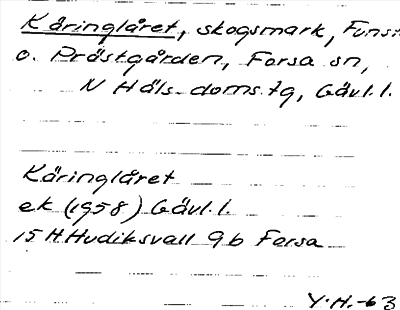 Käringlåret, skogsmark, Funst
o. Prästgården, Forsa sn,
N Häls. doms. tg, Gävl. l.
Käringlåret
ek (1958) Gävl. l.
15 H Hudiksvall 9b Forsa
Y. H. -63